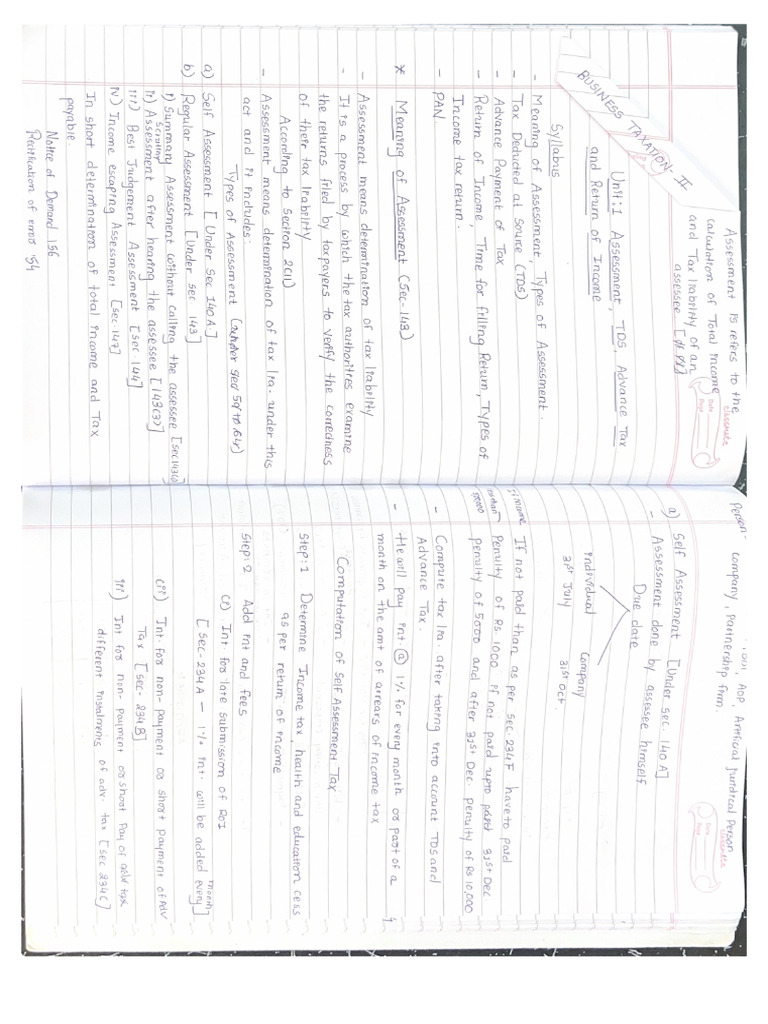 Assessment is refers to the
calculation of Total income
and Tax liability of an
assessee
classmate
Date
Page
BUSINESS TAXATION II
Unit:1 Assessment, TDS, Advance Tax
and Return of Income
Syllabus
- Meaning of Assessment, Types of Assessment.
- Tax Deducted at Source (TDS)
- Advance Payment of Tax
- Return of Income, Time for filling Return, Types of
Income tax return.
- PAN
* Meaning of Assessment (Sec-143)
- Assessment means determination of tax liability
- It is a process by which the tax authorities examine
the returns filed by taxpayers to verify the correctness
of their tax liability
According to Section 2(11)
- Assessment means determination of tax lia. under this
act and it includes:
Types of Assessment (under sec 59 to 64)
a) Self Assessment [Under Sec 140A]
b) Regular Assessment [Under sec 143]
i) Summary Assessment without calling the assessee [sec 143(1)]
Scrutiny
ii) Assessment after hearing the assessee [143(3)]
iii) Best Judgement Assessment [sec 144]
iv) Income escaping Assessment [sec 147]
In short determination of total income and Tax
payable
Notice of Demand 156
Rectification of error 154
Person- company, Partnership firm.
AOP, Artificial Juridical Person
classmate
Date
Page
a) Self Assessment [Under sec. 140A]
- Assessment done by assessee himself
Due date
Individual Company
31st July 31st Oct.
If not paid than as per sec. 234F have to paid
Penulty of Rs 1000 if not paid upto 31st Dec
penulty of 5000 and after 31st Dec penulty of Rs 10,000
if income
- Compute tax lia. after taking into account TDS and
Advance Tax.
- He will pay int. @ 1% for every month or part of a
month on the amt of arrears of income tax
Computation of Self Assessment Tax
Step:1 Determine Income tax, health and education cess
as per return of income
Step:2 Add int and fees
(i) Int for late submission of ROI
[Sec-234A - 1% int. will be added every month]
(ii) Int. for non-payment or short payment of Adv
Tax [sec-234B]
iii) Int for Non-Payment or short Pay of adv tax
different instalments of adv. tax [sec 234C]